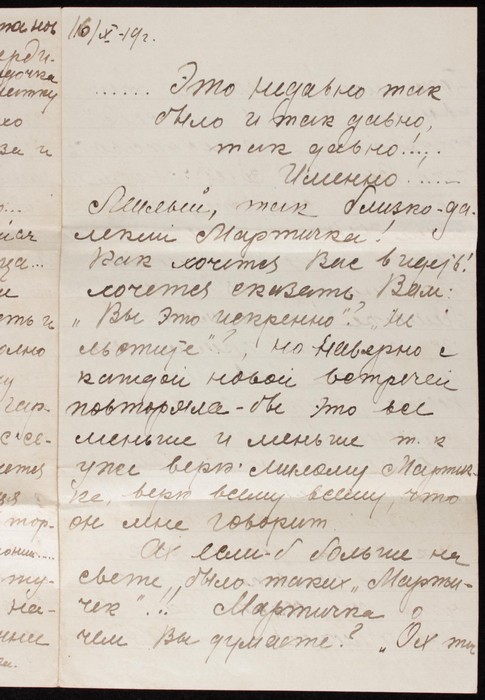 та нов
16/X-19 г.
ерди-
дочка
...... Это недавно так
было и так давно,
хо
так давно.....
за и
Именно ......
Милый, так близко-да-
лекий Мартичка!
ца...
Как хочется Вас видеть!
хочется сказать Вам:
„Вы это искренно"? „Не
сть и
льстите"?, но наверно с
олно
каждой новой встречей
повторяла-бы это все
меньше и меньше т. к
с'се-
уже верю милому Мартич-
ется
ке, верю всему всему, что
он мне говорит.
тор-
Ах если-б больше на
свете „было таких „Марти-
ту-
чек"..! Мартичка о
на-
чем Вы думаете? „Ох ты